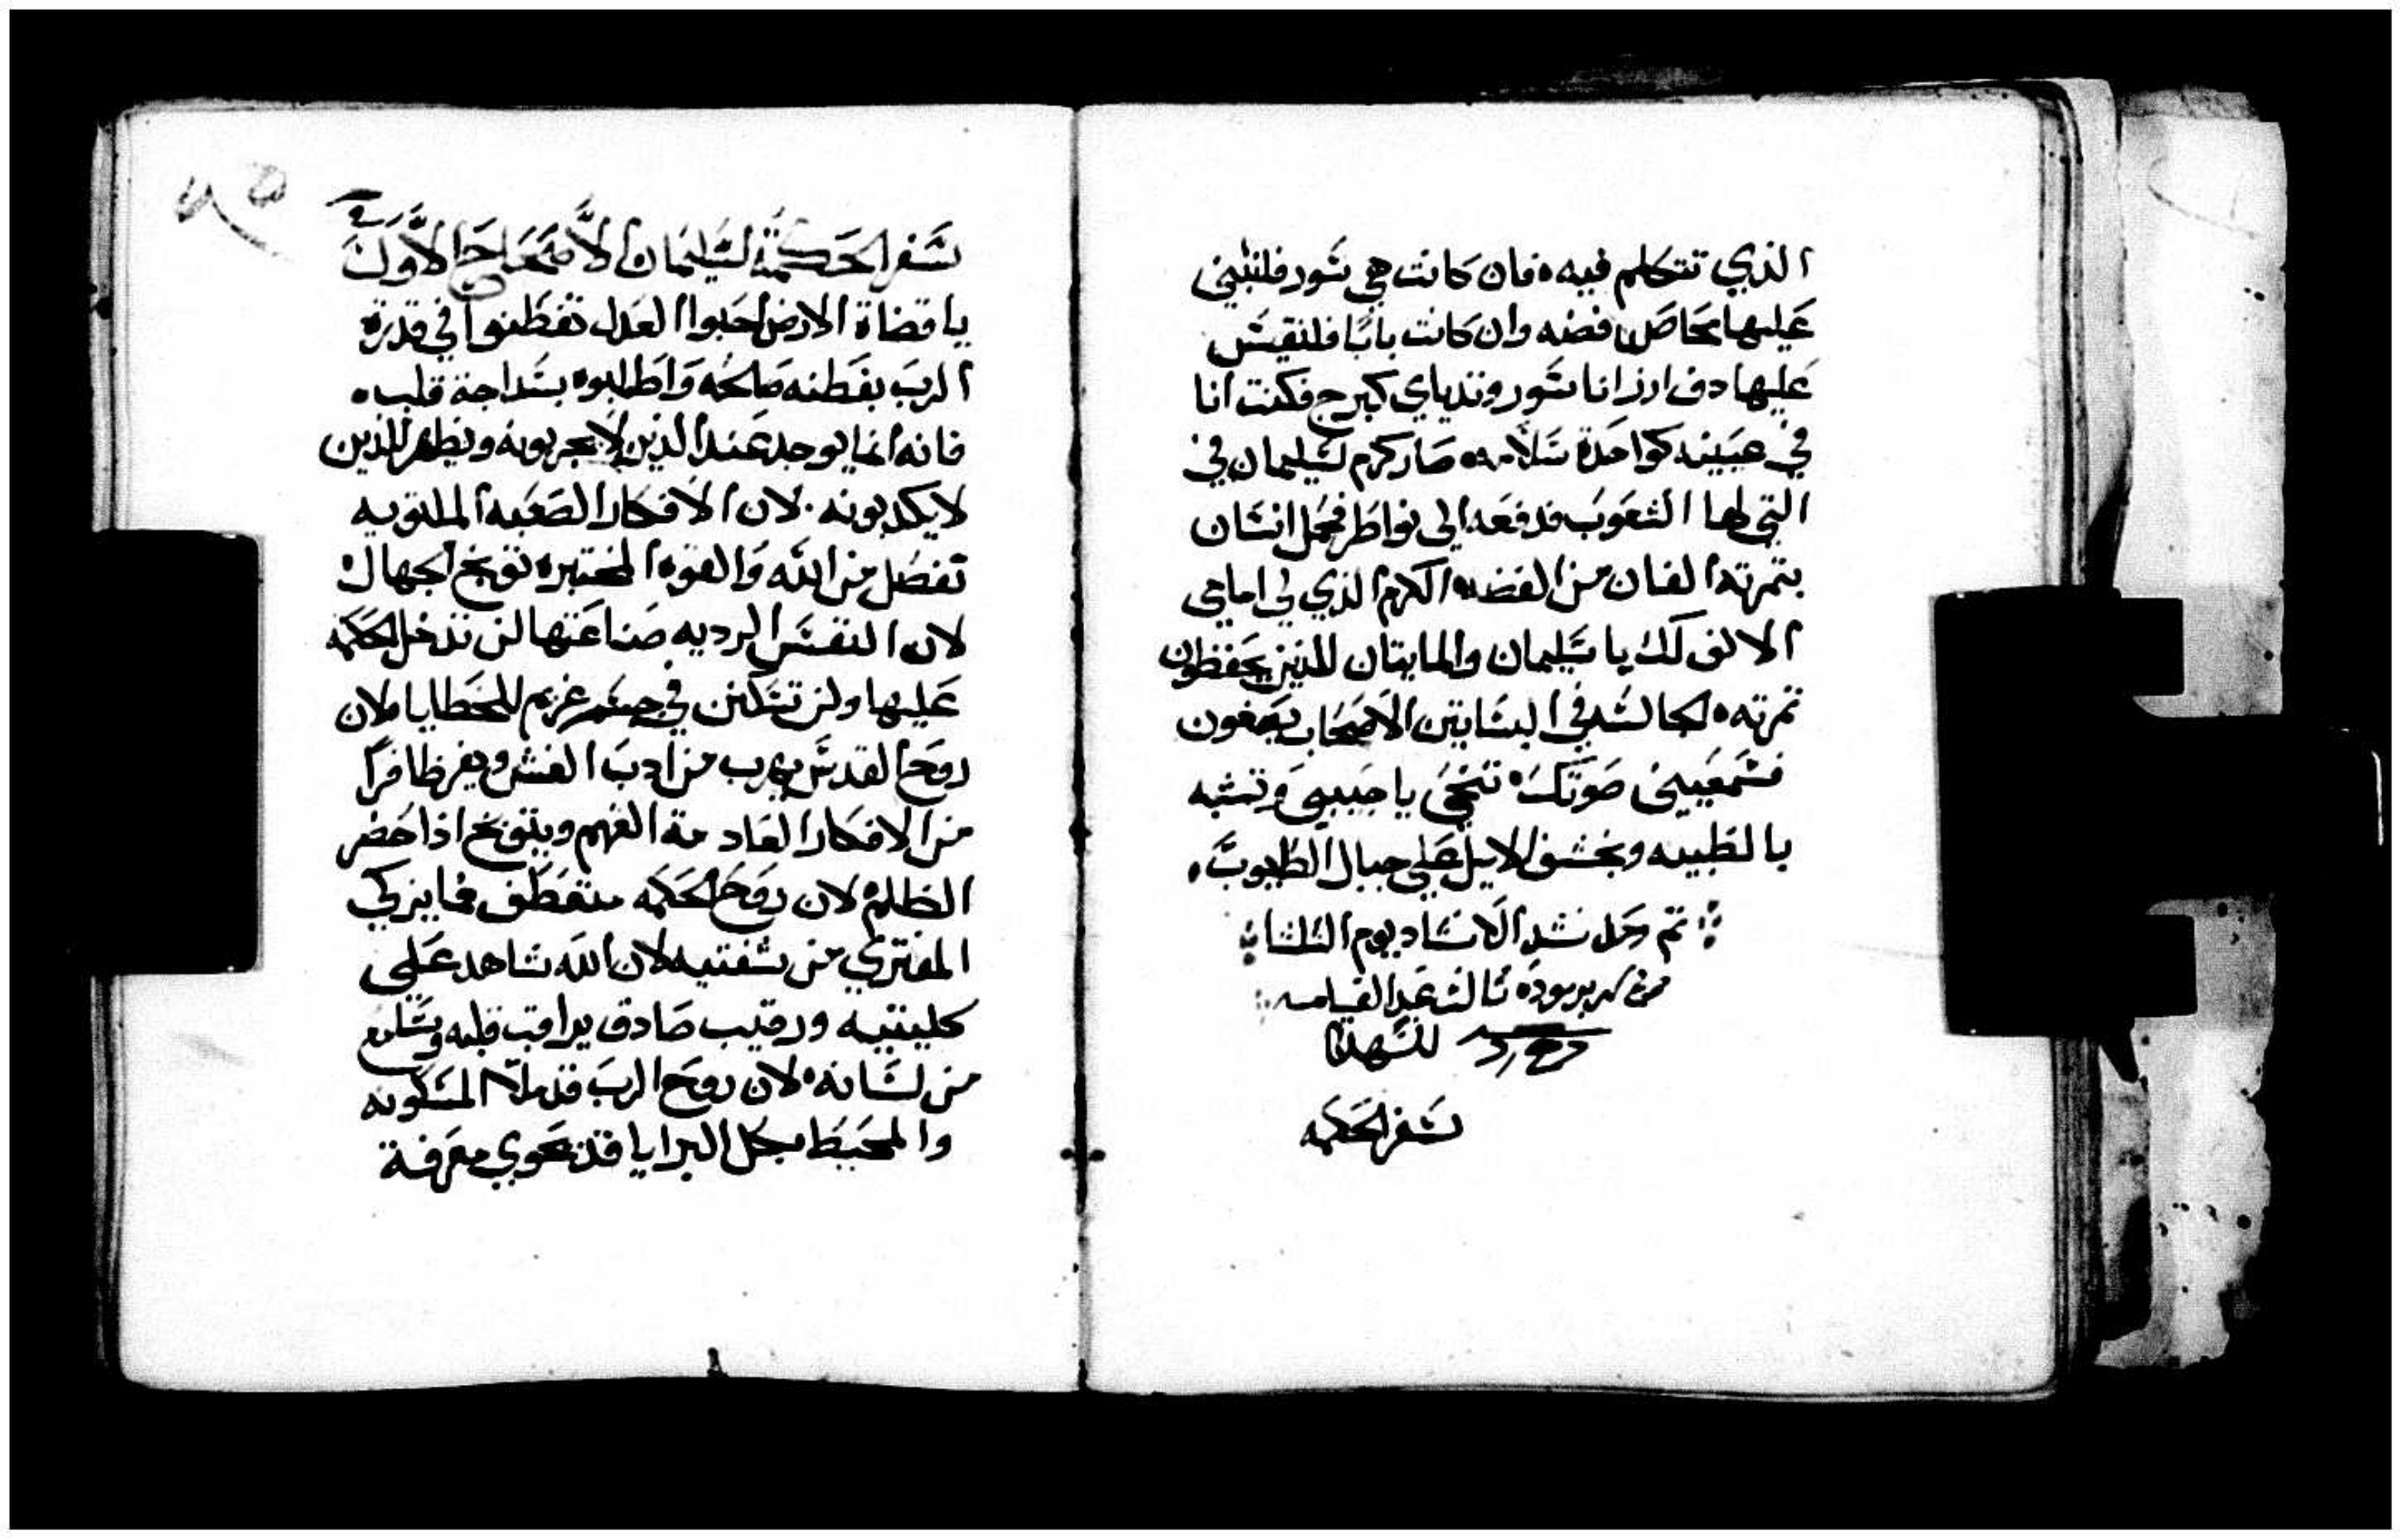 الذي تتكلم فيه فان كانت هي سور فلنبني
عليها محاصل فضه وان كانت بابًا فلنقيس
عليها دف ارز انا سور وتدياي كبرج فكنت انا
في عينيه كواحدة سلامه صار كرم لسليمان في
التي لها الشعوب فدفعه الى نواطر فحمل انسان
بتمرته الفان من الفضه الكرم الذي لي امامي
الالف لك يا سليمان والمايتان للذين يحفظون
تمرته الجالسه في البساتين الاصحاب يصغون
فسمعيني صوتك تنحى يا حبيبي وتشبه
بالظبيه وبخشف الايل على جبال الطيوب
تم وكمل نشد الانشاد يوم الثلثا
من برموده ثالث عيد القيامه
للشهدا
سفر الحكمه
٨٥
سفر الحكمة لسليمان الاصحاح الاول
يا قضاة الارض احبوا العدل تفطنوا في قدرة
الرب بفطنه صالحه واطلبوه بسداجة قلب
فانه انما يوجد عند الذين لا يجربونه ويظهر للذين
لا يكدبونه لان الافكار الصعبه الملتويه
تفصل من الله والقوه المختبره توبخ الجهال
لان النفس الرديه صناعتها لن تدخل الحكمه
عليها ولن تسكن في جسم غريم للخطايا لان
روح القدس يهرب من ادب الغش ويفر ظافرًا
من الافكار العادمة الفهم ويتوبخ اذا حضر
الظلم لان روح الحكمه متعطف فما يزكي
المفتري من شفتيه لان الله شاهد على
كليتيه ورقيب صادق يراقب قلبه وسامع
من لسانه لان روح الرب قد ملا المسكونه
والمحيط بكل البرايا قد يحوي معرفة